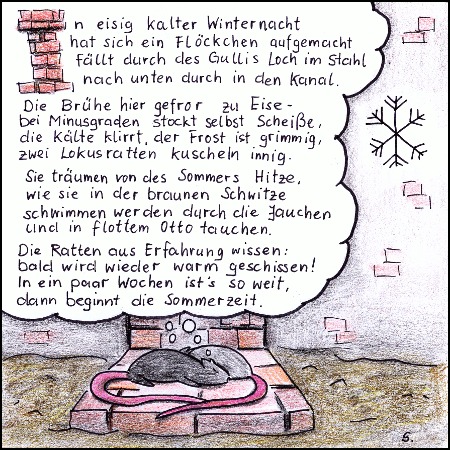 In eisig kalter Winternacht
hat sich ein Flöckchen aufgemacht
fällt durch des Gullis Loch im Stahl
nach unten durch in den Kanal.
Die Brühe hier gefror zu Eise -
bei Minusgraden stockt selbst Scheiße,
die Kälte klirrt, der Frost ist grimmig,
zwei Lokusratten kuscheln innig.
Sie träumen von des Sommers Hitze,
wie sie in der braunen Schwitze
schwimmen werden durch die Jauchen
und in flottem Otto tauchen.
Die Ratten aus Erfahrung wissen:
bald wird wieder warm geschissen!
In ein paar Wochen ist's so weit,
dann beginnt die Sommerzeit.
S.